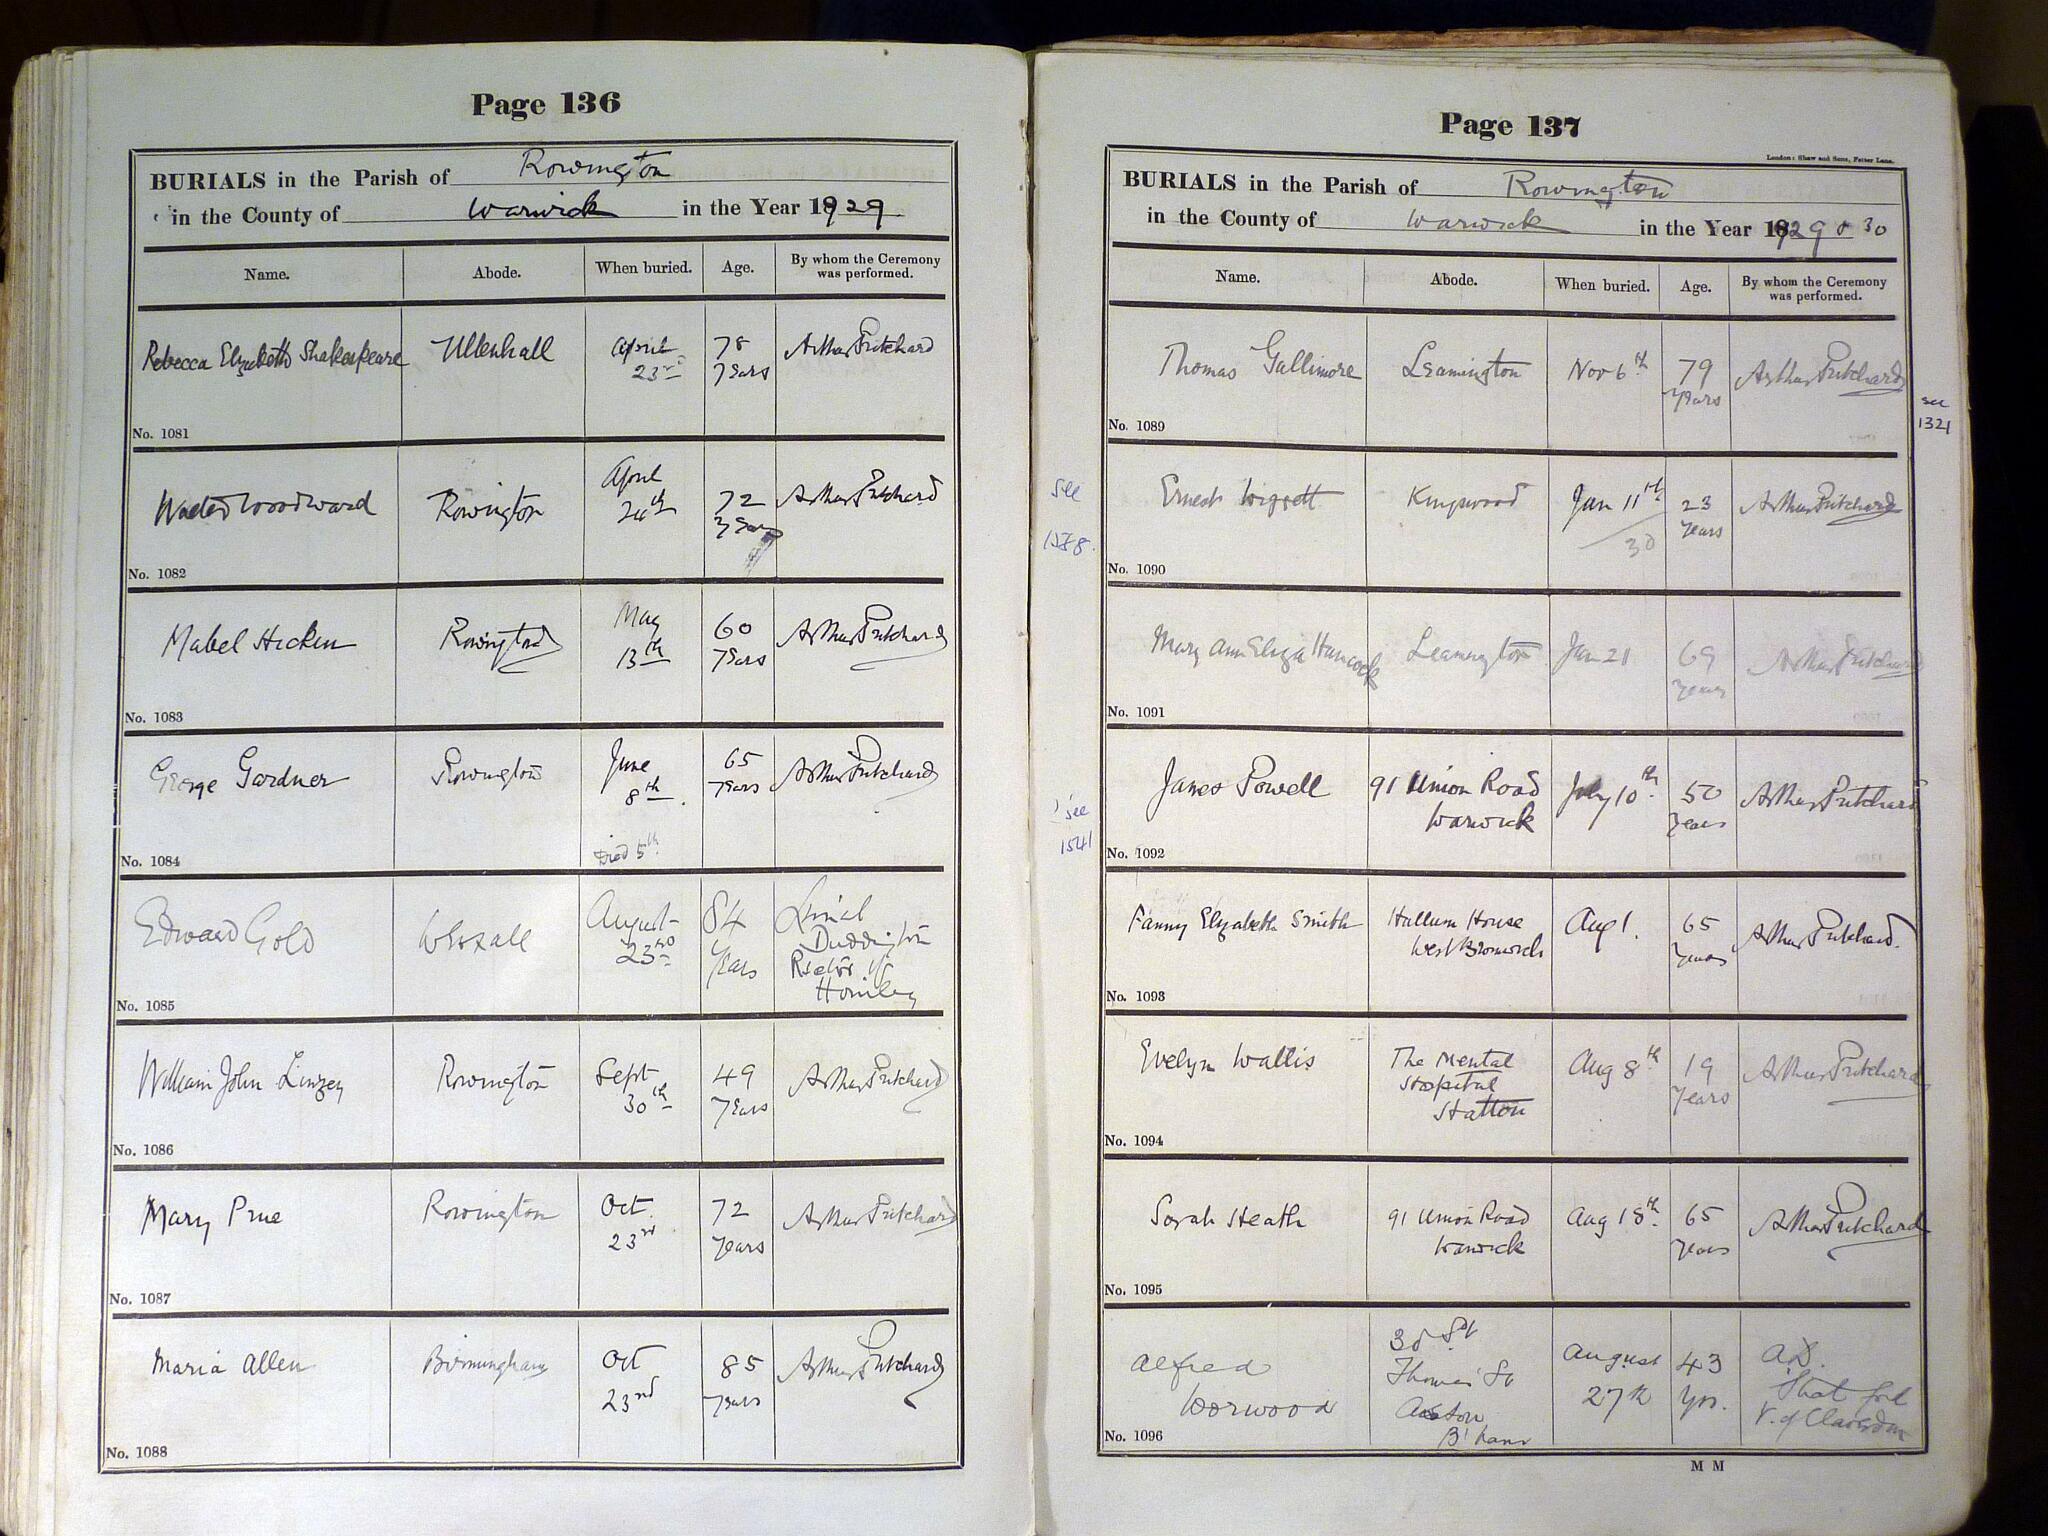 Page 136
BURIALS in the Parish of Rowington
in the County of Warwick in the Year 1929
Name. Abode. When buried. Age. By whom the Ceremony was performed.
Rebecca Elizabeth Shakespeare Ullenhall April 23rd 78 years Arthur Pritchard
No. 1081
Walter Woodward Rowington April 24th 72 years Arthur Pritchard
No. 1082
Mabel Hicken Rowington May 13th 60 years Arthur Pritchard
No. 1083
George Gardner Rowington June 8th. 65 years Arthur Pritchard
Died 5th
No. 1084
Edward Gold Wroxall August 23rd 84 years Duddington Rector of Honiley
No. 1085
William John Linzey Rowington Sept 30th 49 years Arthur Pritchard
No. 1086
Mary Prue Rowington Oct. 23rd 72 years Arthur Pritchard
No. 1087
Maria Allen Birmingham Oct 23rd 85 years Arthur Pritchard
No. 1088
Page 137
London: Shaw and Sons, Fetter Lane.
BURIALS in the Parish of Rowington
in the County of Warwick in the Year 1929 & 30
Name. Abode. When buried. Age. By whom the Ceremony was performed.
Thomas Gallimore Leamington Nov 6th 79 years Arthur Pritchard
see 1321
No. 1089
see
Ernest Kingswood Jan 11th 30 23 years Arthur Pritchard
No. 1090
Mary Ann Eliza Hancock Leamington Jan 21 69 years Arthur Pritchard
No. 1091
James Powell 91 Union Road Warwick July 10th. 50 years Arthur Pritchard
see 1541
No. 1092
Fanny Elizabeth Smith Hallum House West Bromwich Aug 1. 65 years Arthur Pritchard.
No. 1093
Evelyn Wallis The Mental Hospital Hatton Aug 8th 19 years Arthur Pritchard
No. 1094
Sarah Heath 91 Union Road Warwick Aug 18th. 65 years Arthur Pritchard
No. 1095
Alfred Thomas St Aston B'ham August 27th 43 yrs. A.D. V. of Claverdon
No. 1096
M M